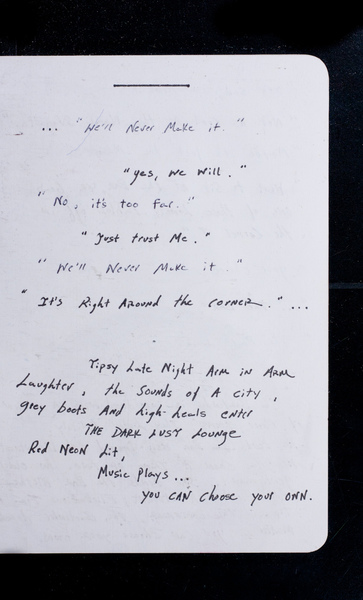 ... "We'll Never Make it."
"yes, we will."
"No, it's too far."
"Just trust Me."
"We'll Never Make it."
"It's Right Around the corner." ...
Tipsy Late Night Arm in Arm
Laughter, the Sounds of A city,
grey boots And high-heels enter
THE DARK LUST LOUNGE
Red Neon Lit,
Music Plays...
you CAN choose your own.